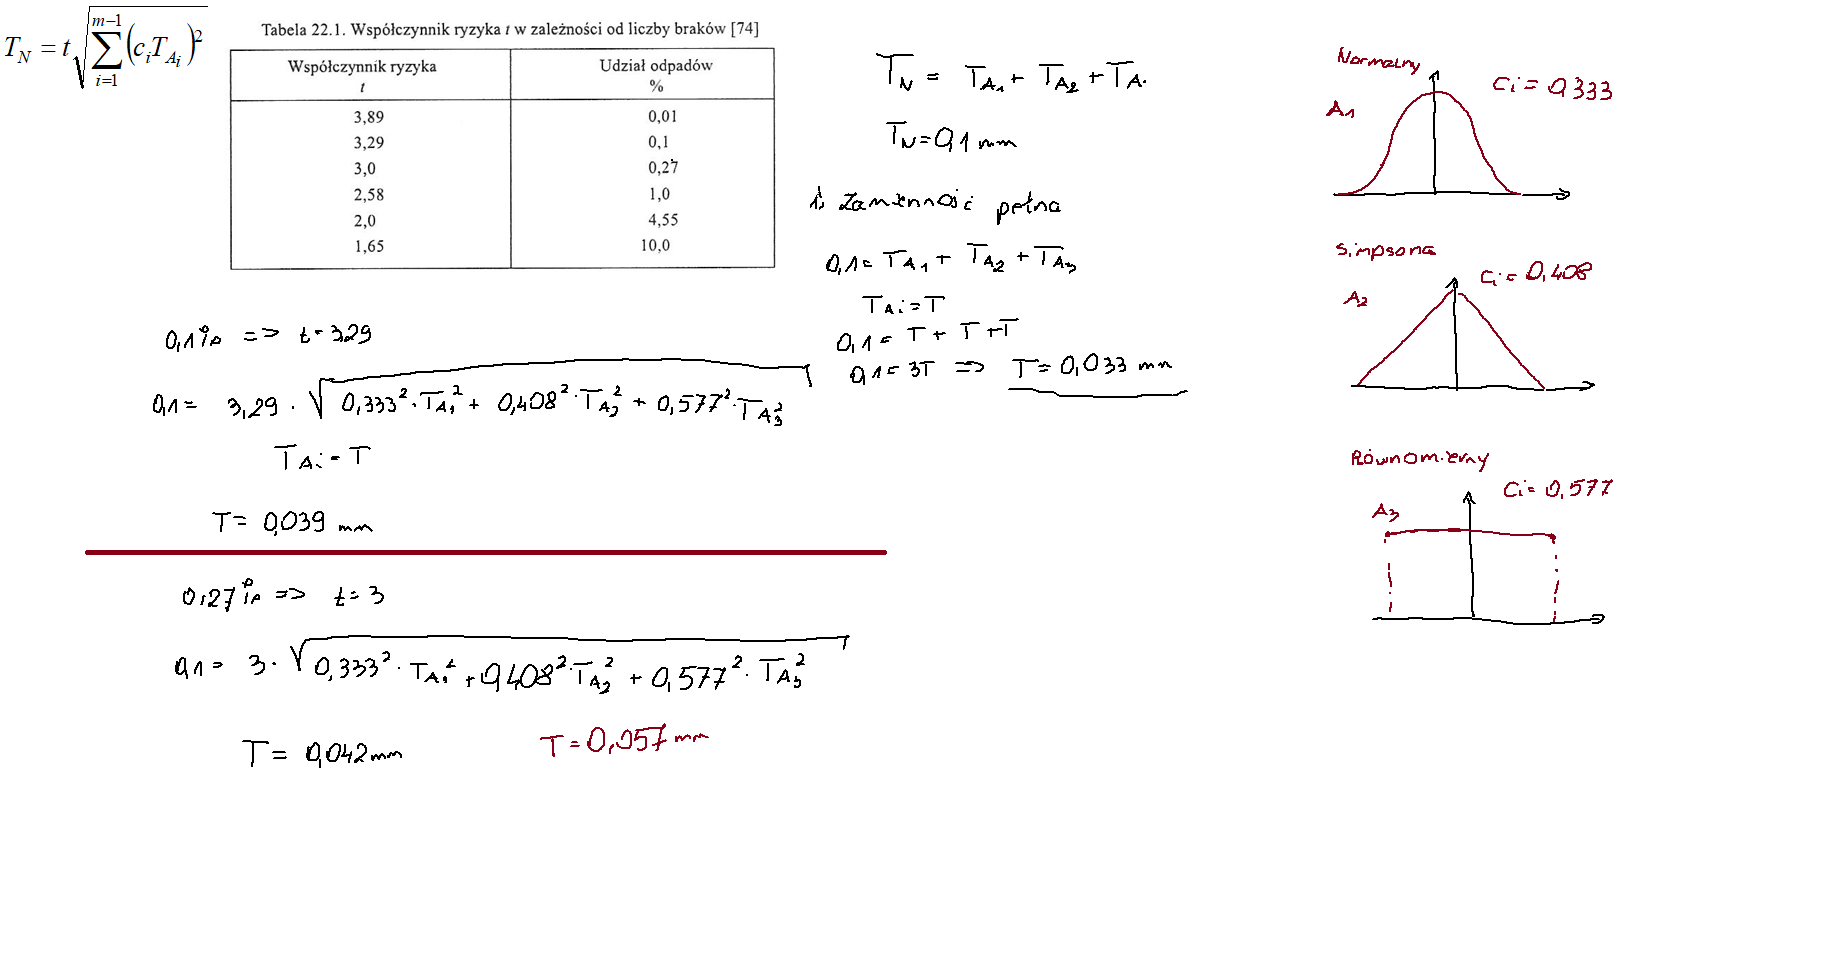 T_N = t√(∑_{i=1}^{m−1} (c_i T_{A_i})²)
Tabela 22.1. Współczynnik ryzyka t w zależności od liczby braków [74]
Współczynnik ryzyka t | Udział odpadów %
3,89 | 0,01
3,29 | 0,1
3,0 | 0,27
2,58 | 1,0
2,0 | 4,55
1,65 | 10,0
0,1 % => t = 3,29
0,1 = 3,29 · √(0,333² · T_{A1}² + 0,408² · T_{A2}² + 0,577² · T_{A3}²)
T_{Ai} = T
T = 0,039 mm
0,27 % => t = 3
0,1 = 3 · √(0,333² · T_{A1}² + 0,408² · T_{A2}² + 0,577² · T_{A3}²)
T = 0,042 mm
T = 0,057 mm
T_N = T_{A1} + T_{A2} + T_{A.}
T_N = 0,1 mm
1. Zamienność pełna
0,1 = T_{A1} + T_{A2} + T_{A3}
T_{Ai} = T
0,1 = T + T + T
0,1 = 3T => T = 0,033 mm
Normalny
A1
Ci = 0,333
Simpsona
A2
Ci = 0,408
Równomierny
A3
Ci = 0,577